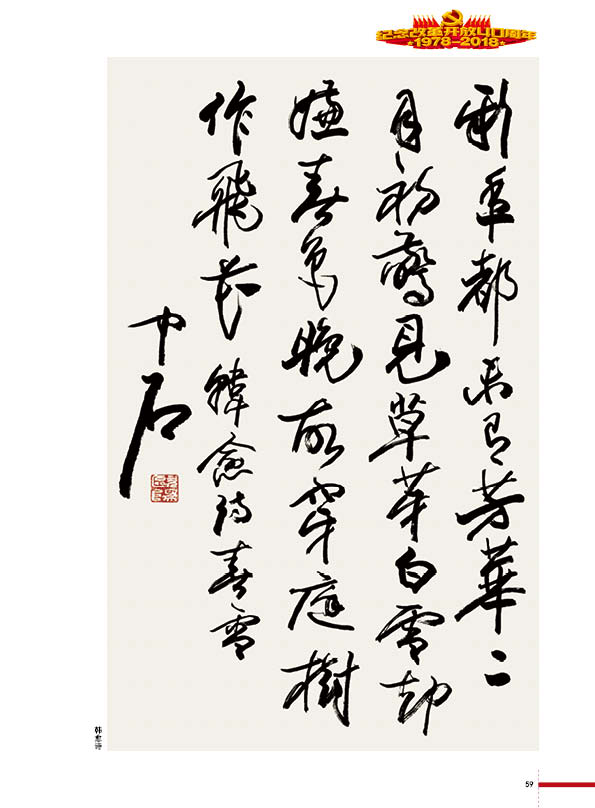 纪念改革开放40周年
1978-2018
新年都未有芳華二
月初驚見草芽白雪却
嫌春色晚故穿庭樹
作飛花 韓愈詩春雪
中石
韩愈诗
59